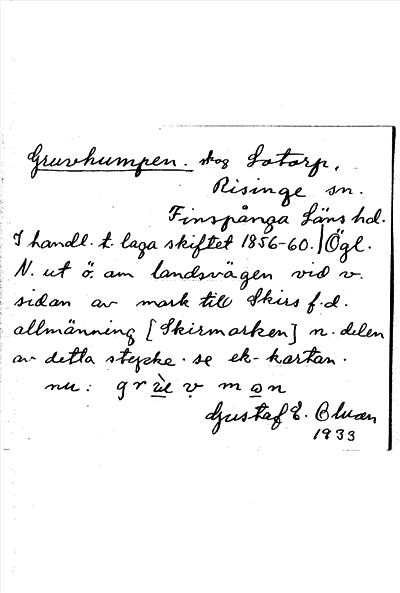 Gruvhumpen. skog Lotorp,
Risinge sn.
Finspånga Läns hd.
I handl. t. laga skiftet 1856-60. | Ögl.
N. ut ö. om landsvägen vid v.
sidan av mark till Skirs f.d.
allmänning [Skirmarken] n. delen
av detta stycke. se ek-kartan.
nu:
Gustaf E.
1933